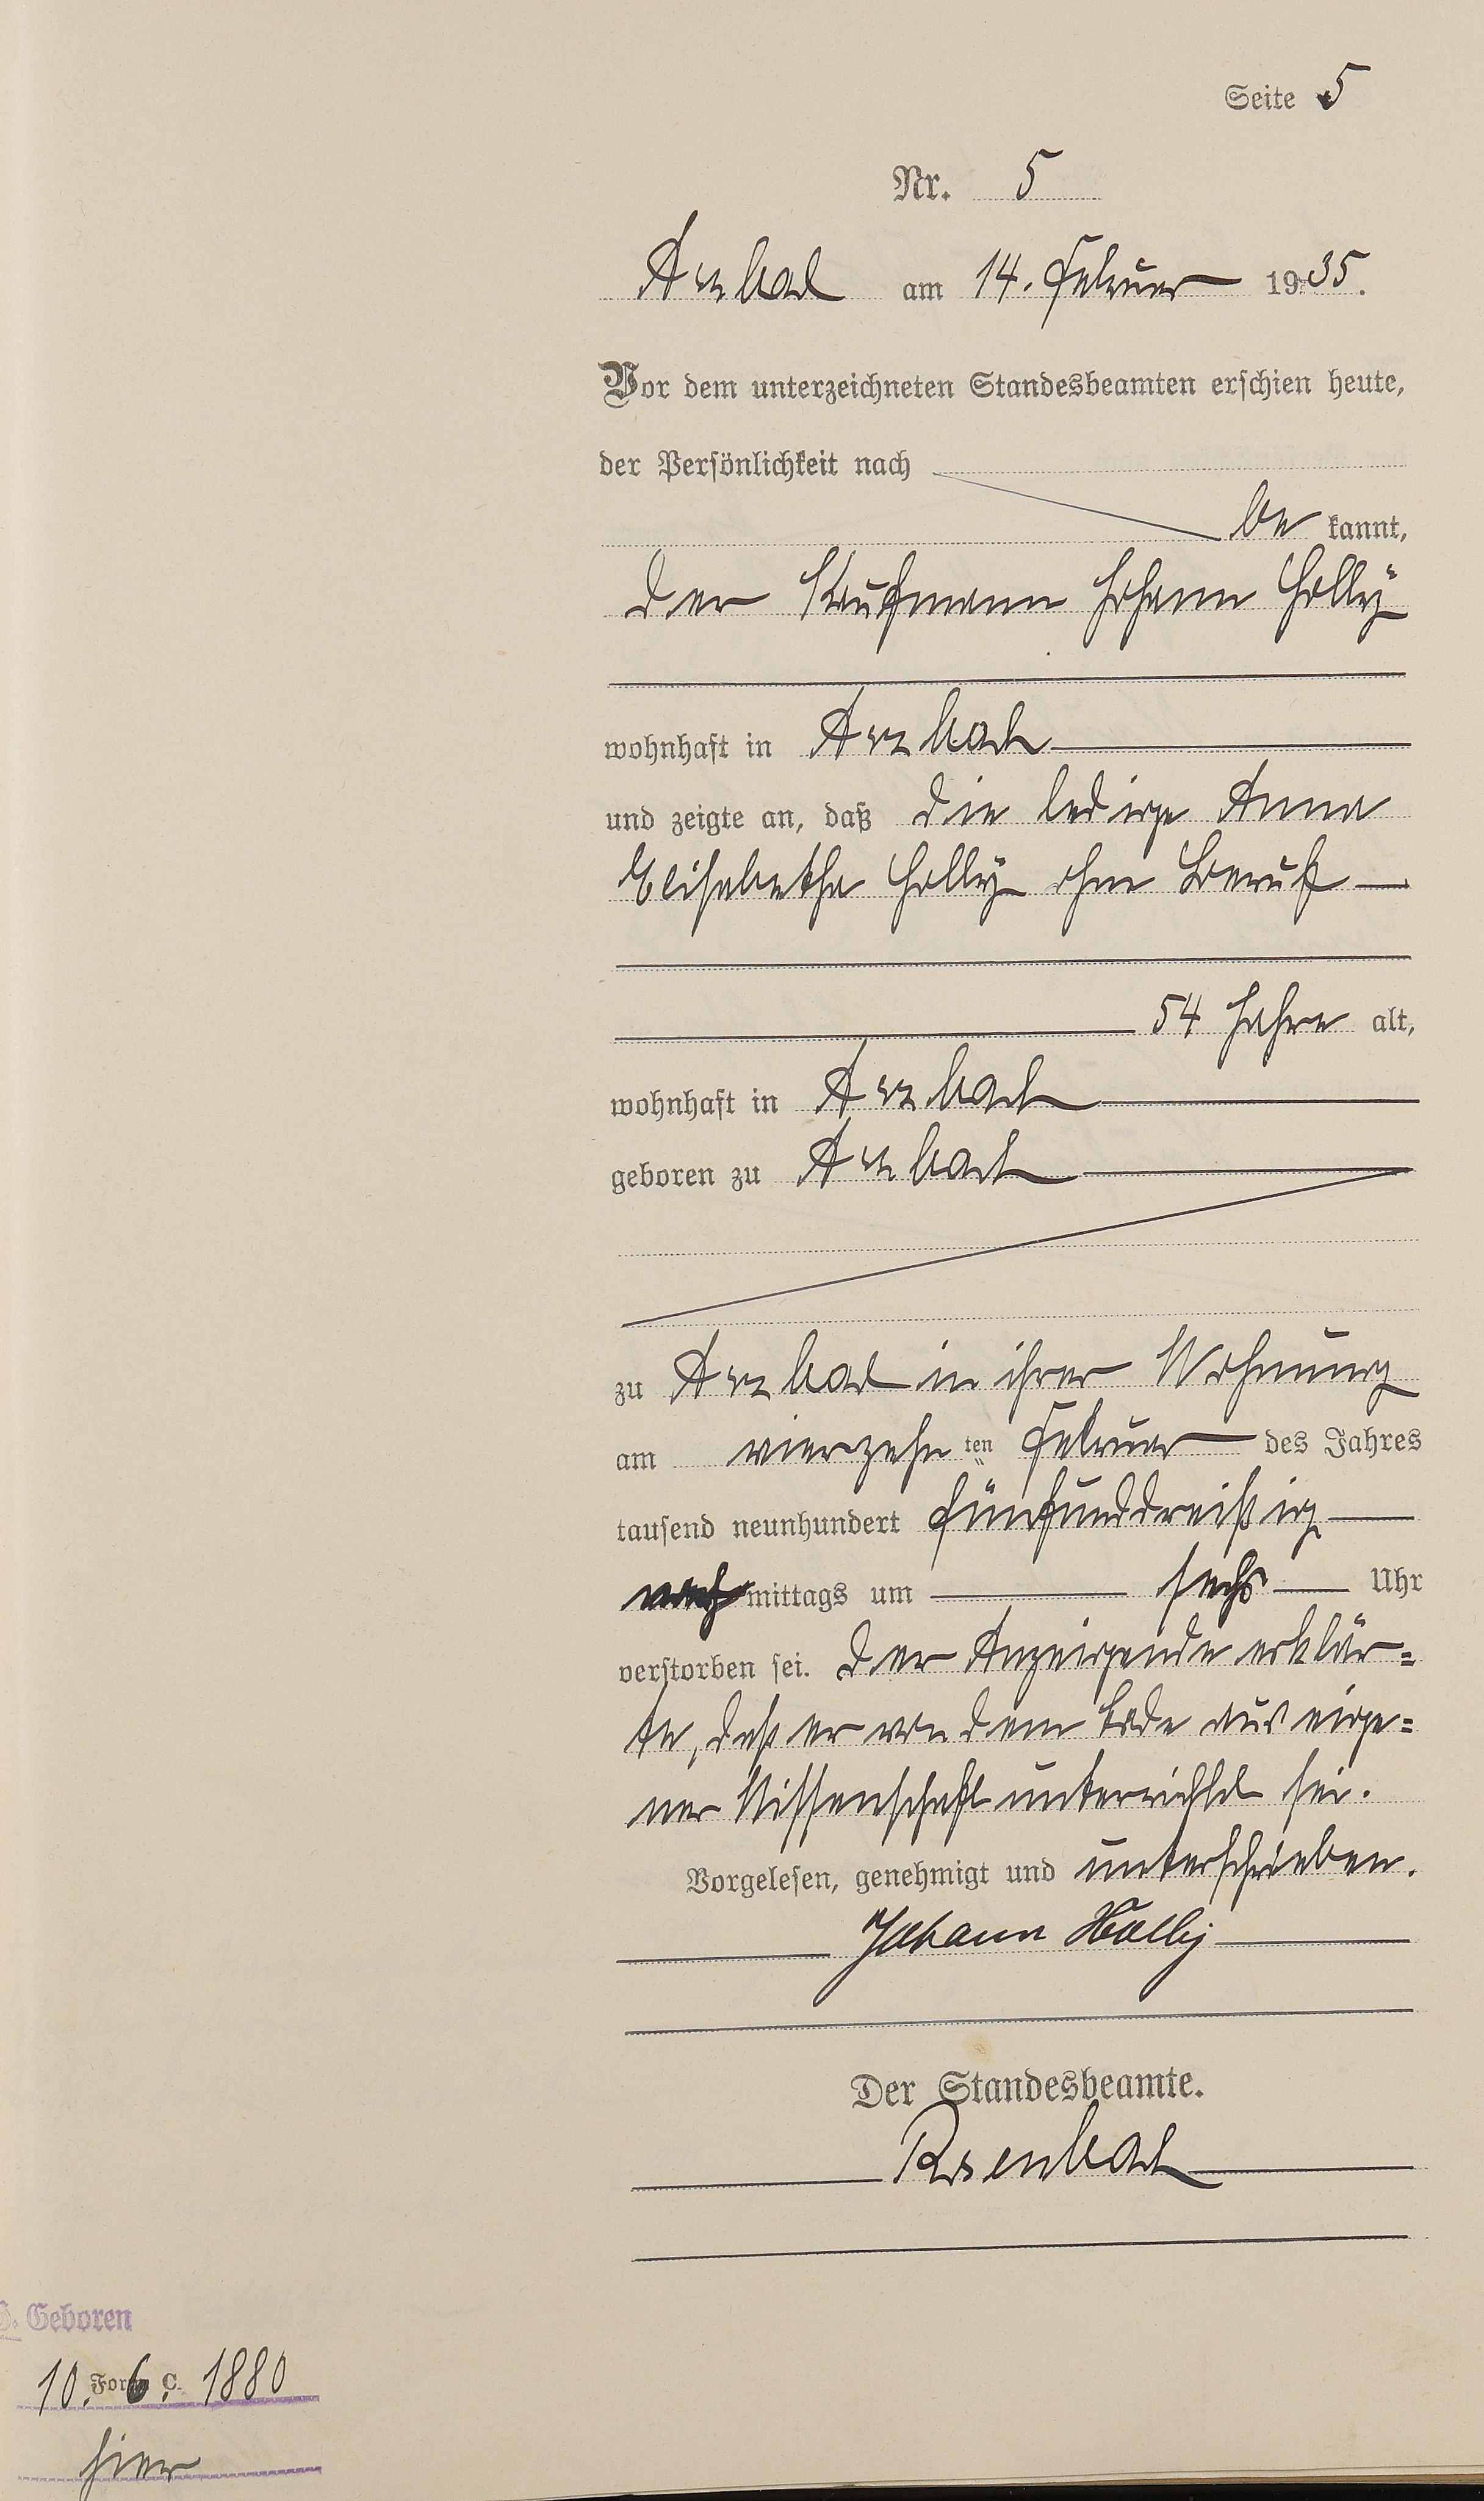 Seite 5
Nr. 5
Arzbach am 14. Februar 1935.
Vor dem unterzeichneten Standesbeamten erschien heute,
der Persönlichkeit nach
be kannt,
der Kaufmann Johann Holly
wohnhaft in Arzbach
und zeigte an, daß die ledige Anna
Elisabetha Holly ohne Beruf
54 Jahre alt,
wohnhaft in Arzbach
geboren zu Arzbach
zu Arzbach in ihrer Wohnung
am vierzehn ten Februar des Jahres
tausend neunhundert fünfunddreißig
nachmittags um sechs Uhr
verstorben sei. Der Anzeigende erklär=
te, daß er von dem Tode aus eige=
ner Wissenschaft unterrichtet sei.
Vorgelesen, genehmigt und unterschrieben.
Johann Holly
Der Standesbeamte.
Rosenbach
Geboren
10. 6. 1880
Form C.
hier